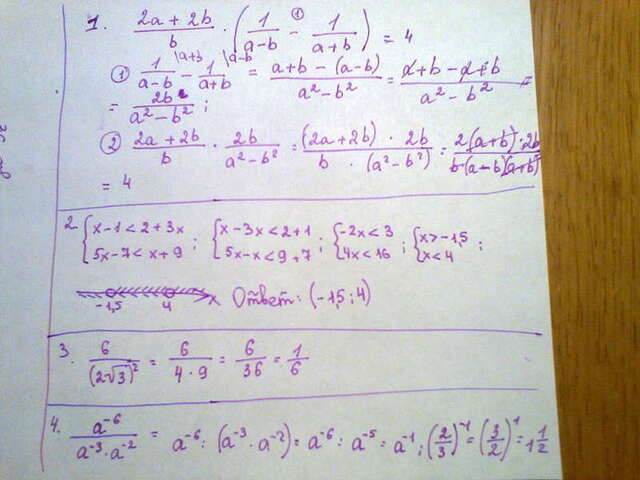 1. (2a + 2b)/b · (1/(a-b) - ① 1/(a+b)) = 4
① 1/(a-b) |a+b - 1/(a+b) |a-b = (a+b - (a-b))/(a² - b²) = (a+b - a+b)/(a² - b²) =
= 2b/(a² - b²) ;
② (2a + 2b)/b · 2b/(a² - b²) = ((2a+2b) · 2b)/(b · (a² - b²)) = (2(a+b) · 2b)/(b·(a-b)(a+b))
= 4
2. { x - 1 < 2 + 3x ; { x - 3x < 2 + 1 ; { -2x < 3 ; { x > -1,5 ;
5x - 7 < x + 9 5x - x < 9 + 7 4x < 16 x < 4
-1,5 4 x Ответ: (-1,5 ; 4)
3. 6/(2√3)² = 6/(4 · 9) = 6/36 = 1/6
4. a⁻⁶/(a⁻³ · a⁻²) = a⁻⁶ : (a⁻³ · a⁻²) = a⁻⁶ : a⁻⁵ = a⁻¹ ; (2/3)⁻¹ = (3/2)¹ = 1 1/2